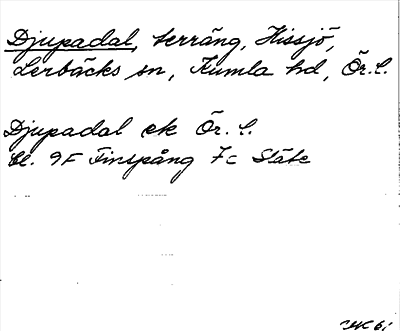 Djupadal, terräng, Hissjö,
Lerbäcks sn, Kumla hd, Ör. l.
Djupadal ek Ör. l.
Bl. 9F Finspång 7c Stäke